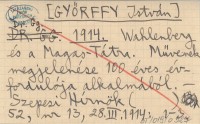 [GYÖRFFY István]
DR. GY. 1914. Wahlenberg
és a Magas-Tátra. Művének
megjelenése 100 éves év-
fordulója alkalmából.
Szepesi Hírnök (
52, nr 13, 28.III.1914.